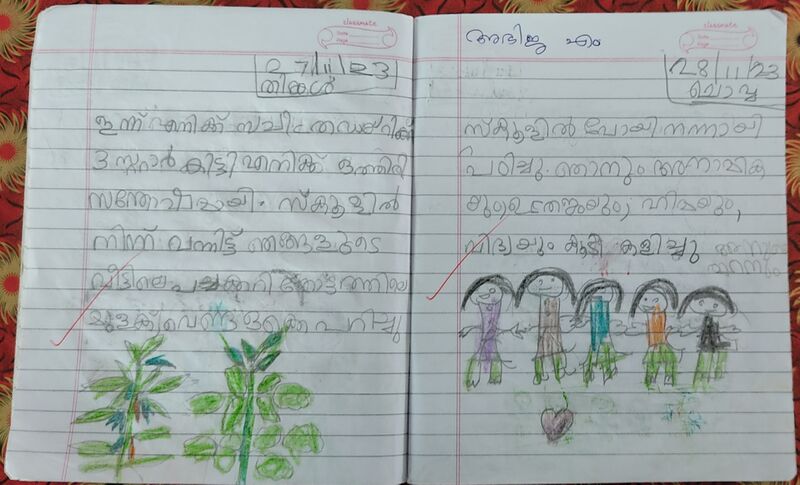 classmate
Date
Page
27/11/23
തിങ്കൾ
ഇന്ന് എനിക്ക്
3 സ്റ്റാർ കിട്ടി എനിക്ക് ഒത്തിരി
സന്തോഷമായി. സ്കൂളിൽ
നിന്ന് വന്നിട്ട് ഞങ്ങളുടെ
വീട്ടിലെ പച്ചക്കറി തോട്ടത്തിലെ
പറിച്ചു
classmate
Date
Page
അഭിജ എം
28/11/23
ചൊവ്വ
സ്കൂളിൽ പോയി നന്നായി
പഠിച്ചു. ഞാനും അനാമിക
ഹിമയും,
വിദ്യയും കൂടി കളിച്ചു